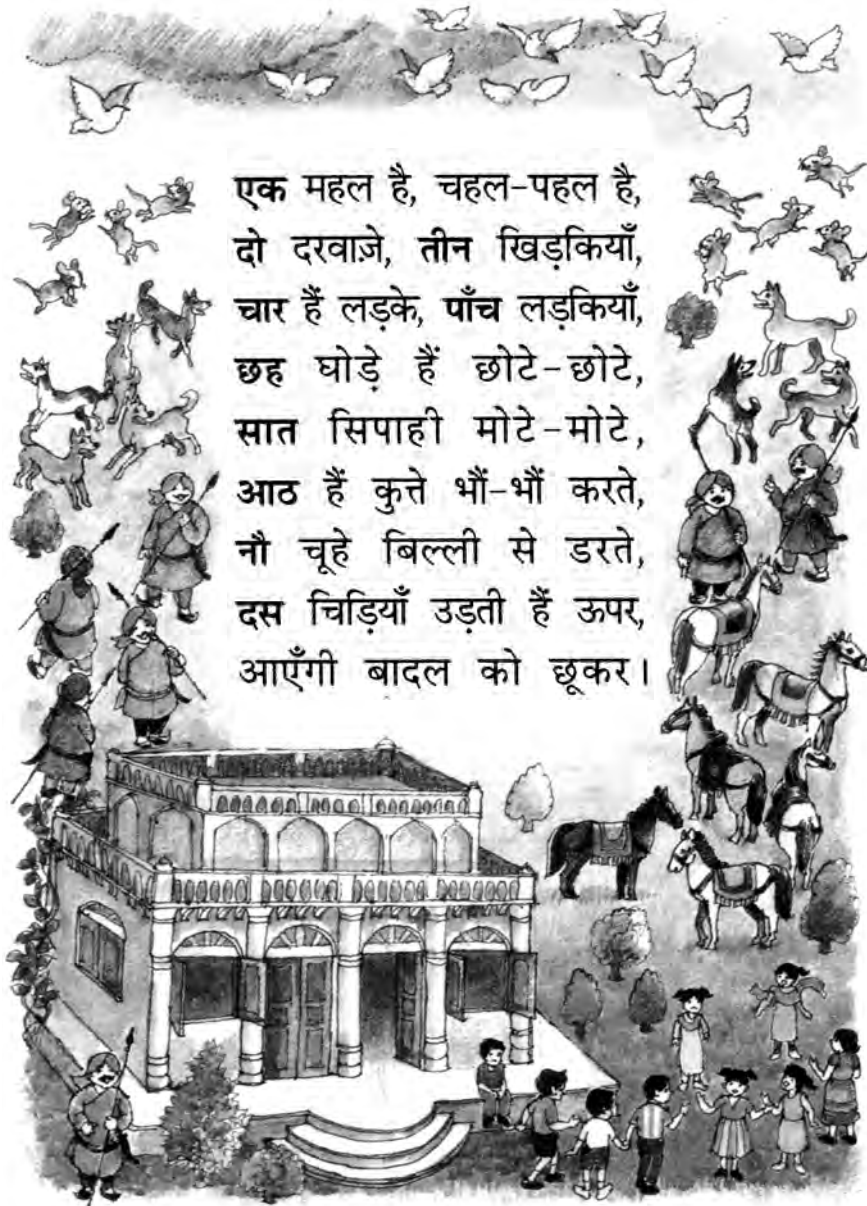 एक महल है, चहल-पहल है,
दो दरवाज़े, तीन खिड़कियाँ,
चार हैं लड़के, पाँच लड़कियाँ,
छह घोड़े हैं छोटे-छोटे,
सात सिपाही मोटे-मोटे,
आठ हैं कुत्ते भौं-भौं करते,
नौ चूहे बिल्ली से डरते,
दस चिड़ियाँ उड़ती हैं ऊपर,
आएँगी बादल को छूकर।